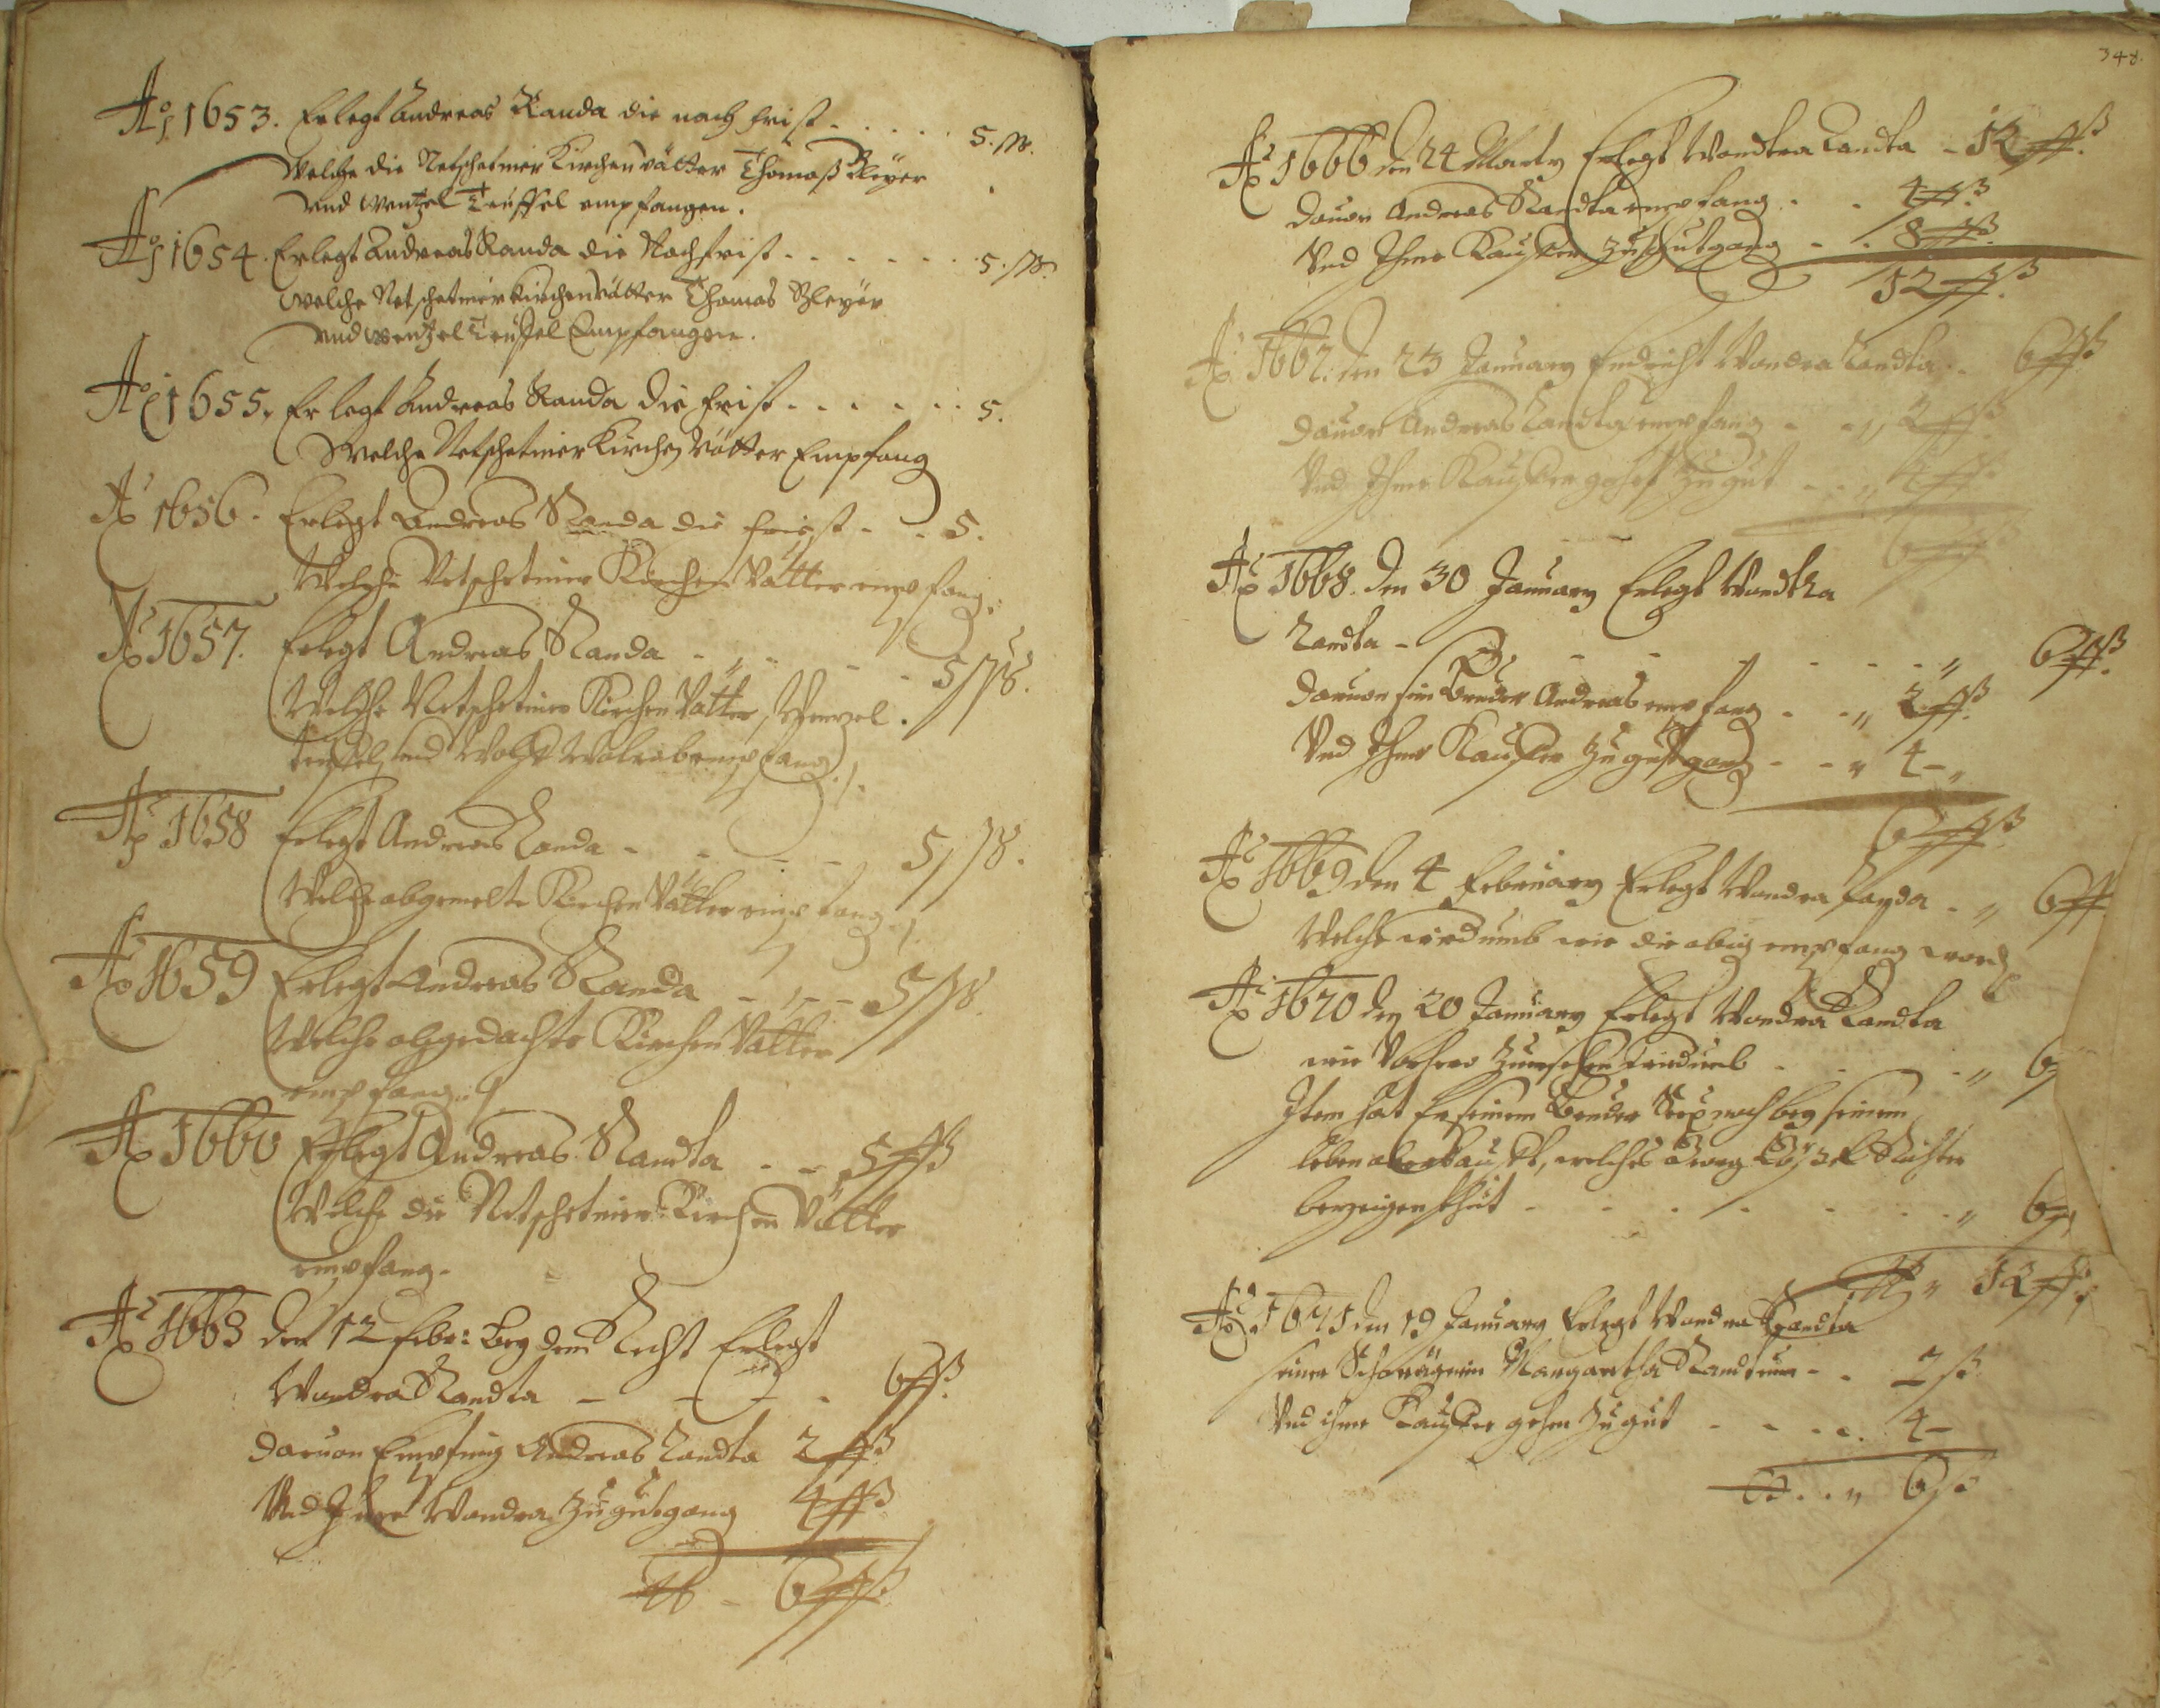 Ao 1653. Erlegt Andreas Randa die nach frist . . . . . 5. ß.
Welche die Netschetiner Kirchenvätter Thomaß Bleyer
vnd Wentzel Teuffel empfangen.
Ao 1654. Erlegt Andreas Randa die Nachfrist . . . . . . . 5. ß.
Welche Netschetiner Kirchenvätter Thomas Bleyer
vnd Wentzel Teuffel Empfangen.
Ao 1655. Erlegt Andreas Randa die frist . . . . . . . 5.
Welche Netschetiner Kirchen Vätter Empfang
Ao 1656. Erlegt Andreas Randa die frist - . 5.
Welche Netschetiner Kirchen Vätter empfang.
Ao 1657. Erlegt Andreas Randa - - - - 5 ß.
Welche Netschetiner Kirchen Vätter, Wenzel
teuffel, vnd empfang
Ao 1658 Erlegt Andreas Randa - - - - 5 ß.
Welche abgemelte Kirchen Vätter empfang
Ao 1659 Erlegt Andreas Randa - - - 5 ß.
Welche abgedachte Kirchen Vätter
empfang.
Ao 1660 Erlegt Andreas Randta . - 5 fß
Welche die Netschetiner Kirchen Vätter
empfang.
Ao 1663 den 12 febr: bey dem Recht Erlegt
Wondra Randta - - - . 6 fß.
daruon Empfing Andreas Randta 2 fß
Vnd Ihme Wondra Zu gutgang 4 fß
- 6 fß
348.
Ao 1666 den 24 Marty Erlegt Wondra Randta - 12 fß.
dauon Andreas Randta empfang . . 4 fß
Vnd Ihme Kauffer Zu gutgang - . 8 fß
12 fß.
Ao 1667. den 23 January Endricht Wondra Randta . 6 fß
dauon Andreas Randta empfang - - 2 fß
Vnd Ihme Kauffer gehet Zu gut - - 4 fß
6 fß
Ao 1668. den 30 January Erlegt Wondra
Randta - - - - - - - - 6 fß.
daruon sein Bruder Andreas empfang - - 2 fß.
Vnd Ihme Kauffer Zu gut gang - - 4 -
6 fß
Ao 1669 den 4 February Erlegt Wondra Randa - 6 fß
Welche widrumb wie die obig empfang word
Ao 1670 den 20 January Erlegt Wondra Randta
wie Vorhero Zuersehen widrumb - - - 6
Item hat Er seinem Bruder noch bey seinem
leben abkaufft, welches Georg Richter
bezeigen thut - - - - - - - 6
12 fß.
Ao 1671 den 19 January Erlegt Wondra Randta
seiner Schwägerin Margaretha Randtin - . 2 ß
Vnd ihme Kauffer gehen Zu gut - - - - 4 -
6 ß